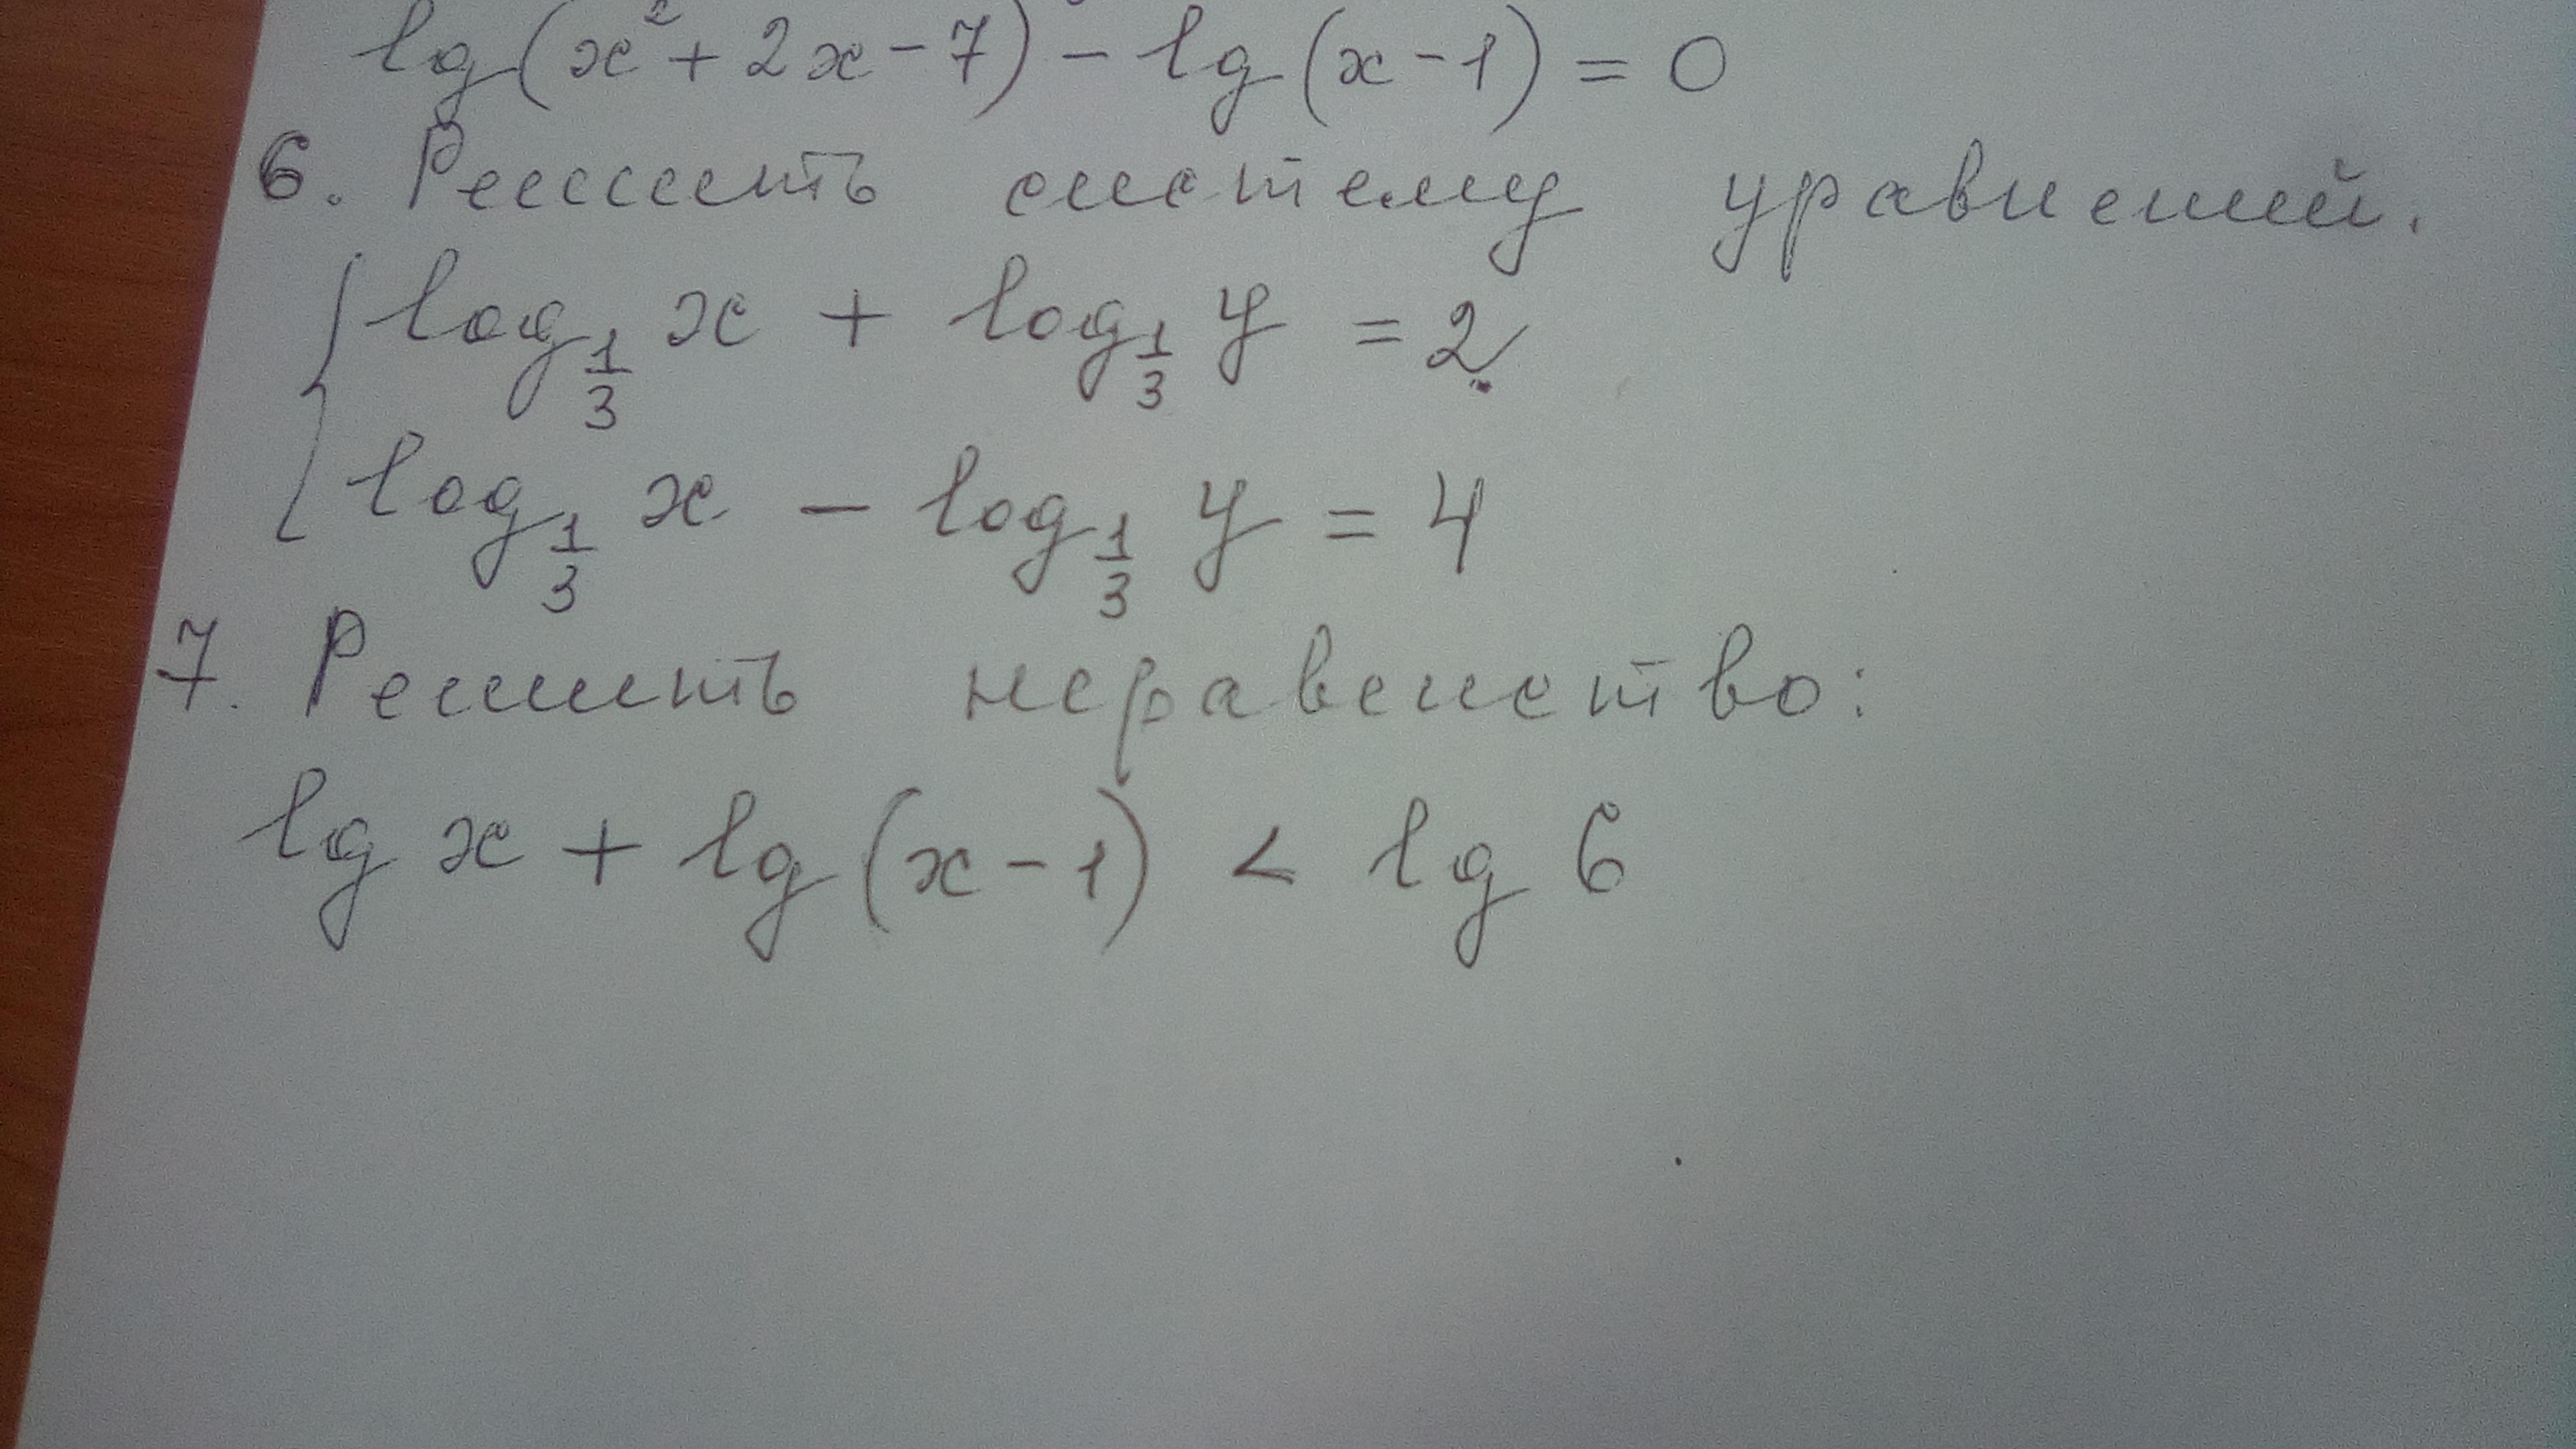 lg(x²+2x-7)-lg(x-1)=0
6. Решить систему уравнений.
{ log_{1/3} x + log_{1/3} y = 2
log_{1/3} x - log_{1/3} y = 4
7. Решить неравенство:
lg x + lg(x-1) < lg 6